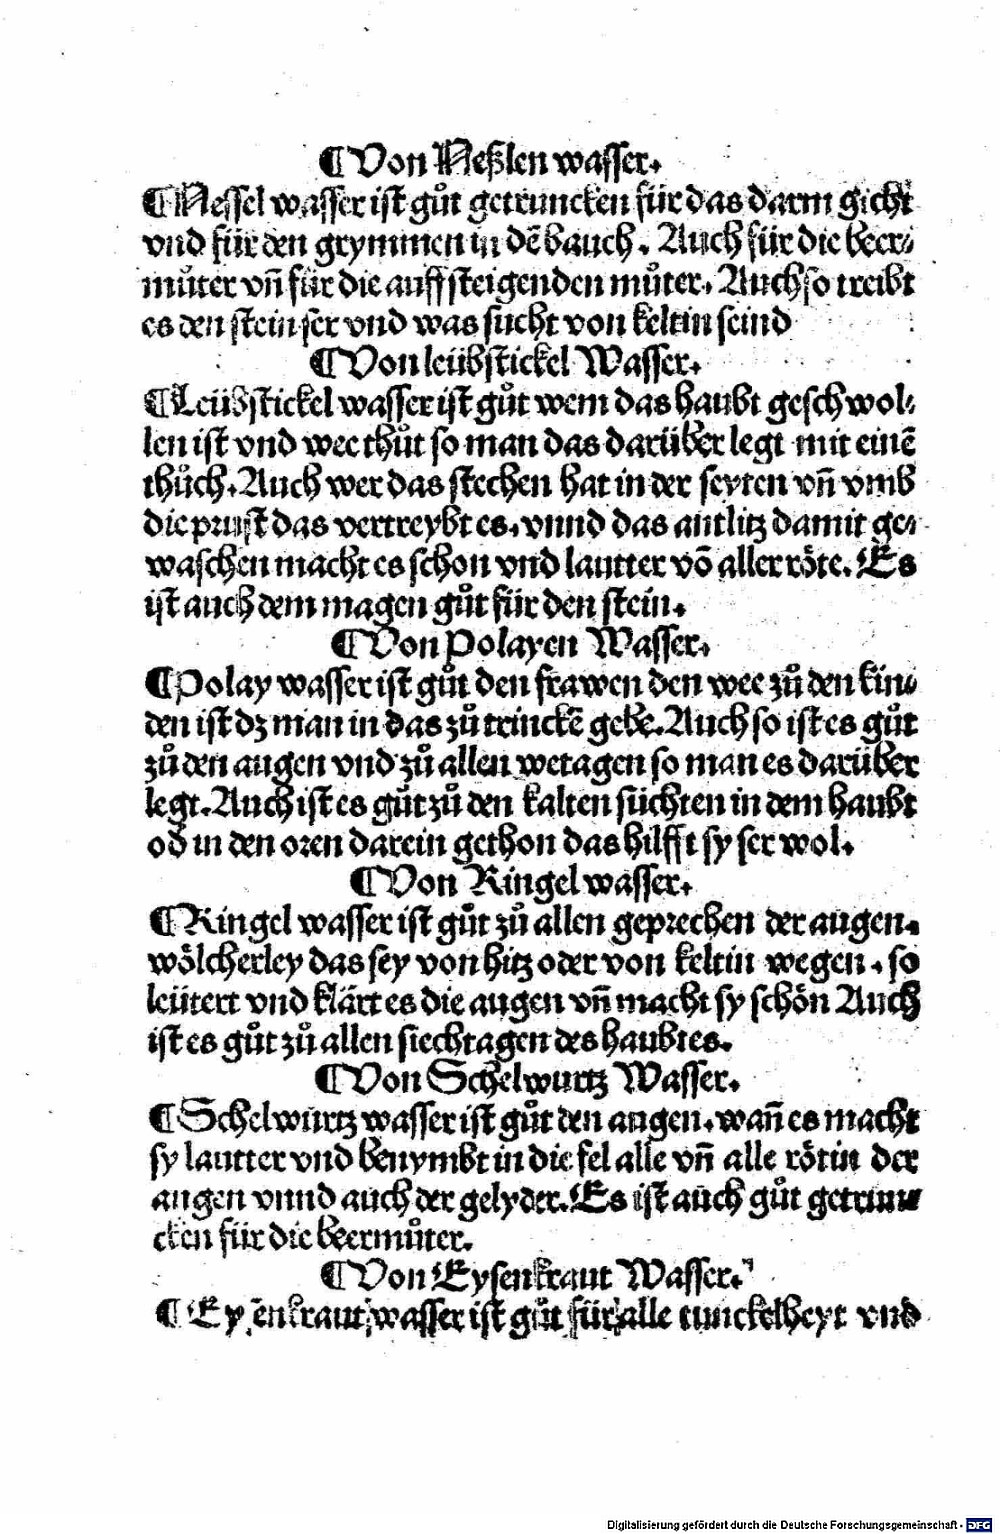 ¶Von Neßlen wasser.
¶Nessel wasser ist gůt getruncken für das darm gicht
vnd für den grymmen in dē bauch. Auch für die beer⸗
můter vn̄ für die auffsteigenden můter. Auch so treibt
es den stein ser vnd was sucht von keltin seind
¶Von leübstickel Wasser.
¶Leübstickel wasser ist gůt wem das haubt geschwol⸗
len ist vnd wee thůt so man das darüber legt mit einē
thůch. Auch wer das stechen hat in der seyten vn̄ vmb
die prust das vertreybt es. vnnd das antlitz damit ge⸗
waschen macht es schon vnd lautter vō aller röte. Es
ist auch dem magen gůt für den stein.
¶Von Polayen Wasser.
¶Polay wasser ist gůt den frawen den wee zů den kin⸗
den ist dz man in das zů trinckē gebe. Auch so ist es gůt
zů den augen vnd zů allen wetagen so man es darüber
legt. Auch ist es gůt zů den kalten süchten in dem haubt
od in den oren darein gethon das hilfft sy ser wol.
¶Von Ringel wasser.
¶Ringel wasser ist gůt zů allen geprechen der augen.
wölcherley das sey von hitz oder von keltin wegen. so
leütert vnd klärt es die augen vn̄ macht sy schön Auch
ist es gůt zů allen siechtagen des haubtes.
¶Von Schelwurtz Wasser.
¶Schelwurtz wasser ist gůt den augen. wan̄ es macht
sy lautter vnd benymbt in die fel alle vn̄ alle rötin der
augen vnnd auch der gelyder. Es ist auch gůt getrun⸗
cken für die beermůter.
¶Von Eysenkraut Wasser.
¶Eysenkraut wasser ist gůt für alle tunckelheyt vnd
Digitalisierung gefördert durch die Deutsche Forschungsgemeinschaft - DFG